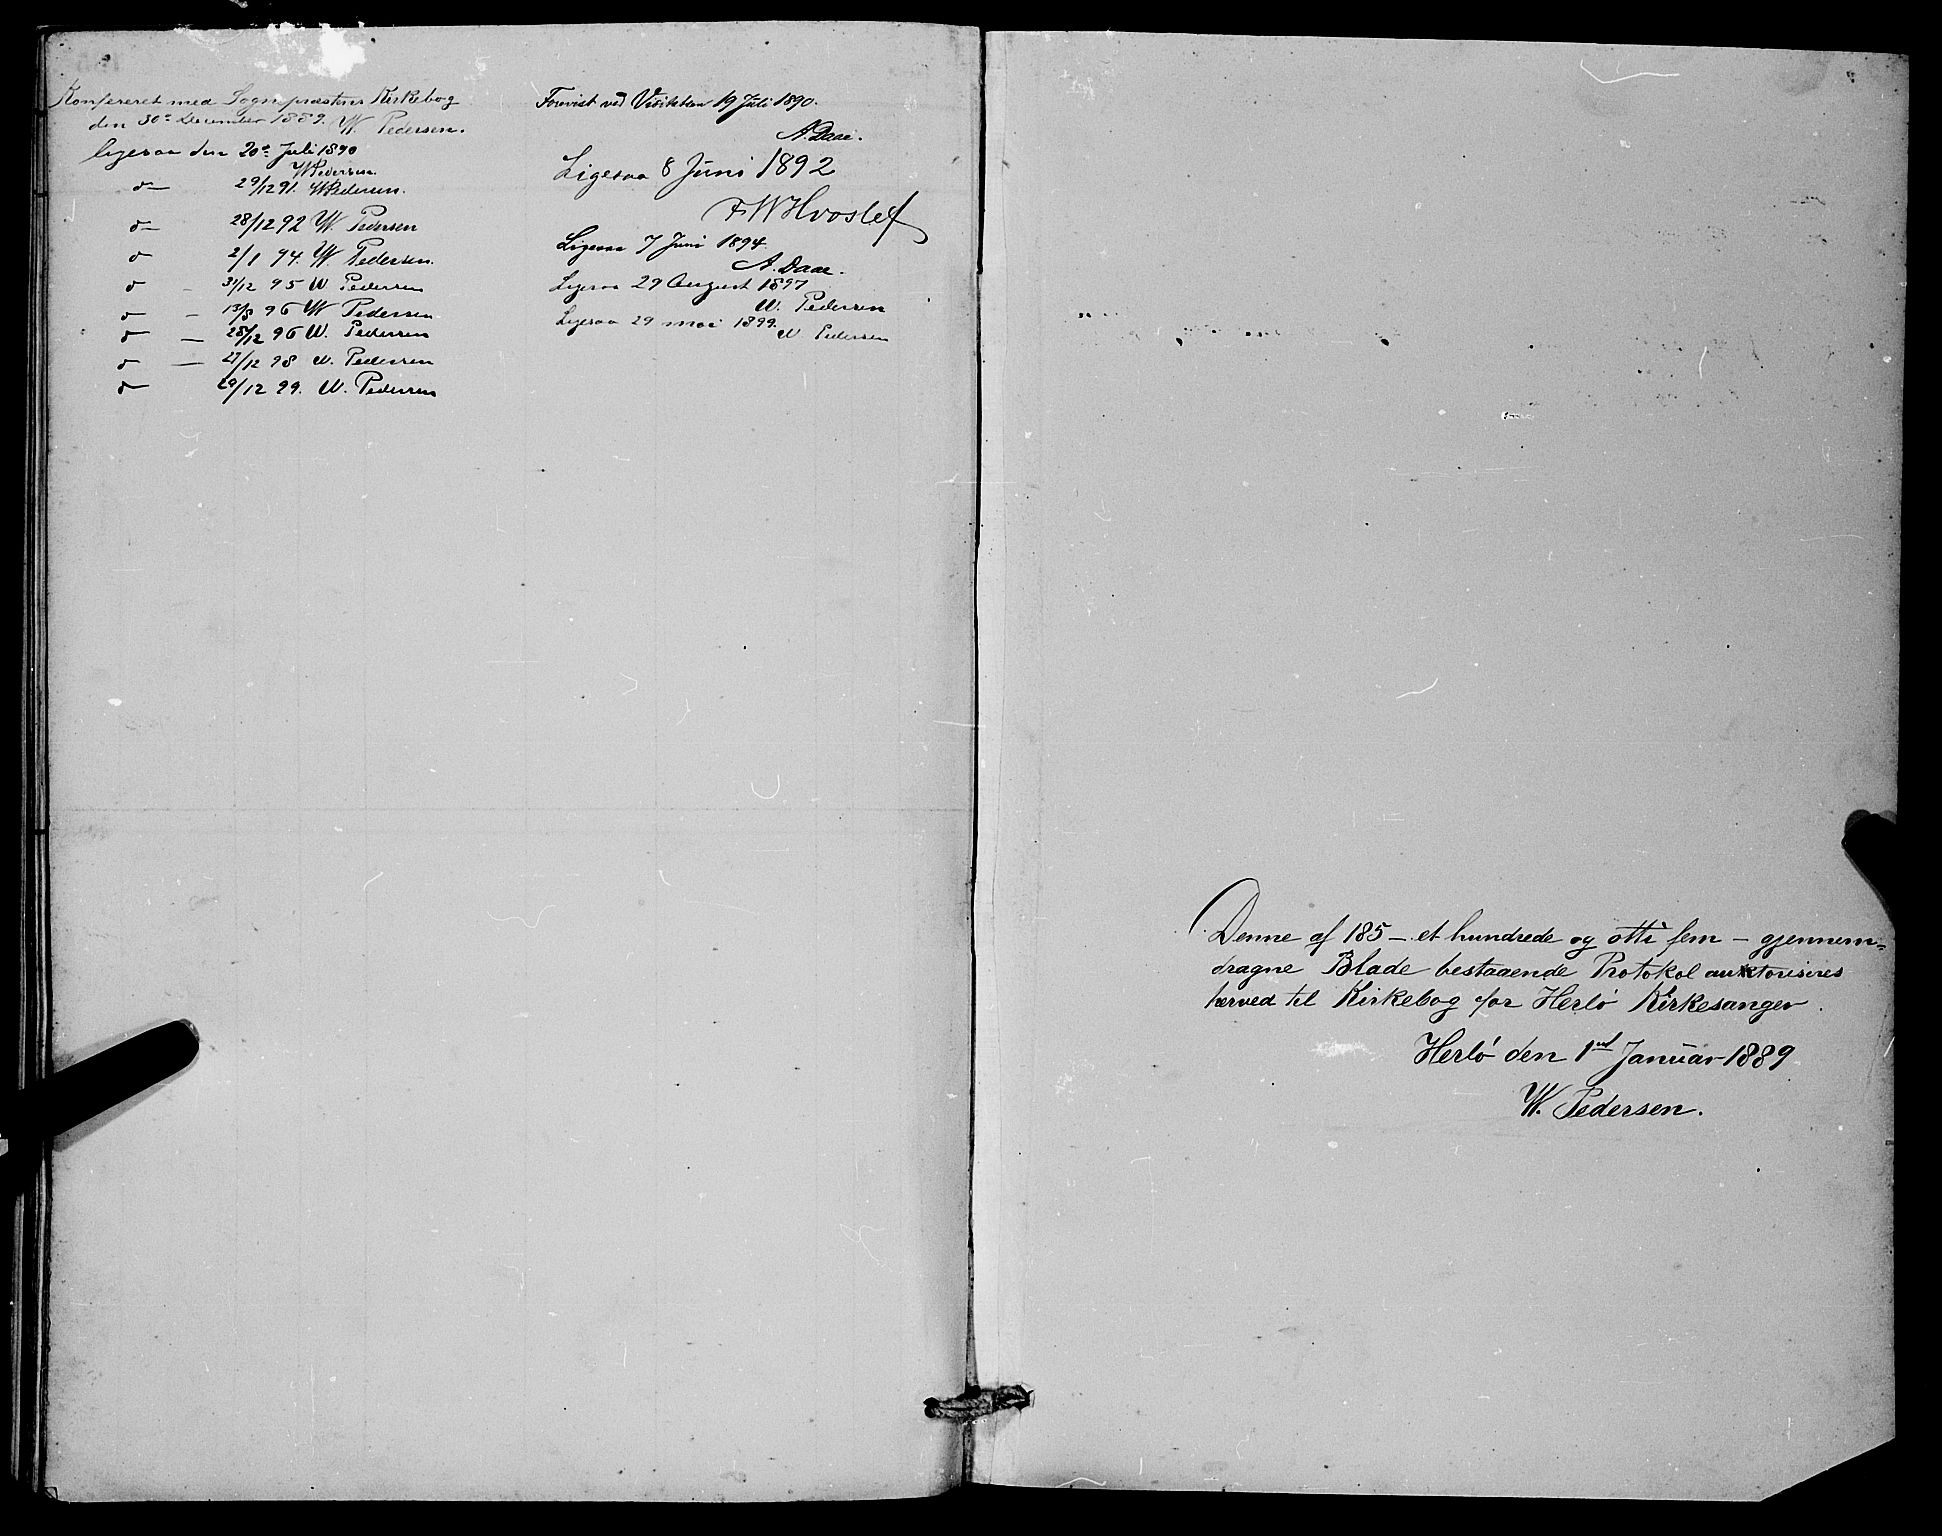 Konfereret med Sognepræstens Kirkebog
den 30te December 1889. W. Pedersen.
ligesaa den 20de Juli 1890
W Pedersen
do — 29/12 91. W Pedersen.
do — 28/12 92 W. Pedersen
do 2/1 94. W. Pedersen.
do - 31/12 95 W Pedersen
do - 13/8 96 W Pedersen
do — 28/12 96 W. Pedersen
do — 27/12 98 W. Pedersen
do — 29/12 99. W. Pedersen
Forevist ved Visitatsen 19 Juli 1890.
A. Daae.
Ligesaa 8 Juni 1892
F W Hvoslef
Ligesaa 7 Juni 1894.
A. Daae.
Ligesaa 29 August 1897
W. Pedersen
Ligesaa 29 mai 1899.
W. Pedersen
Denne af 185 — et hundrede og otti fem — gjennem=
dragne Blade bestaaende Protokol auktoriseres
herved til Kirkebog for Herlö Kirkesanger.
Herlö den 1ste Januar 1889
W. Pedersen.